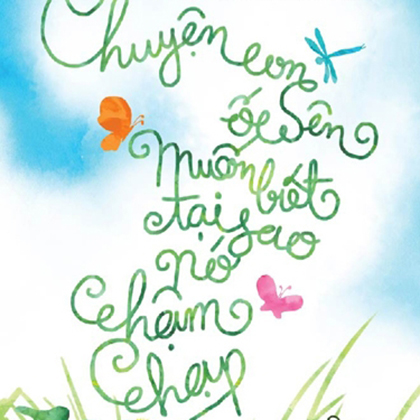 Chuyện con
ốc Sên
Muốn biết
tại sao
nó
Chậm
Chạp